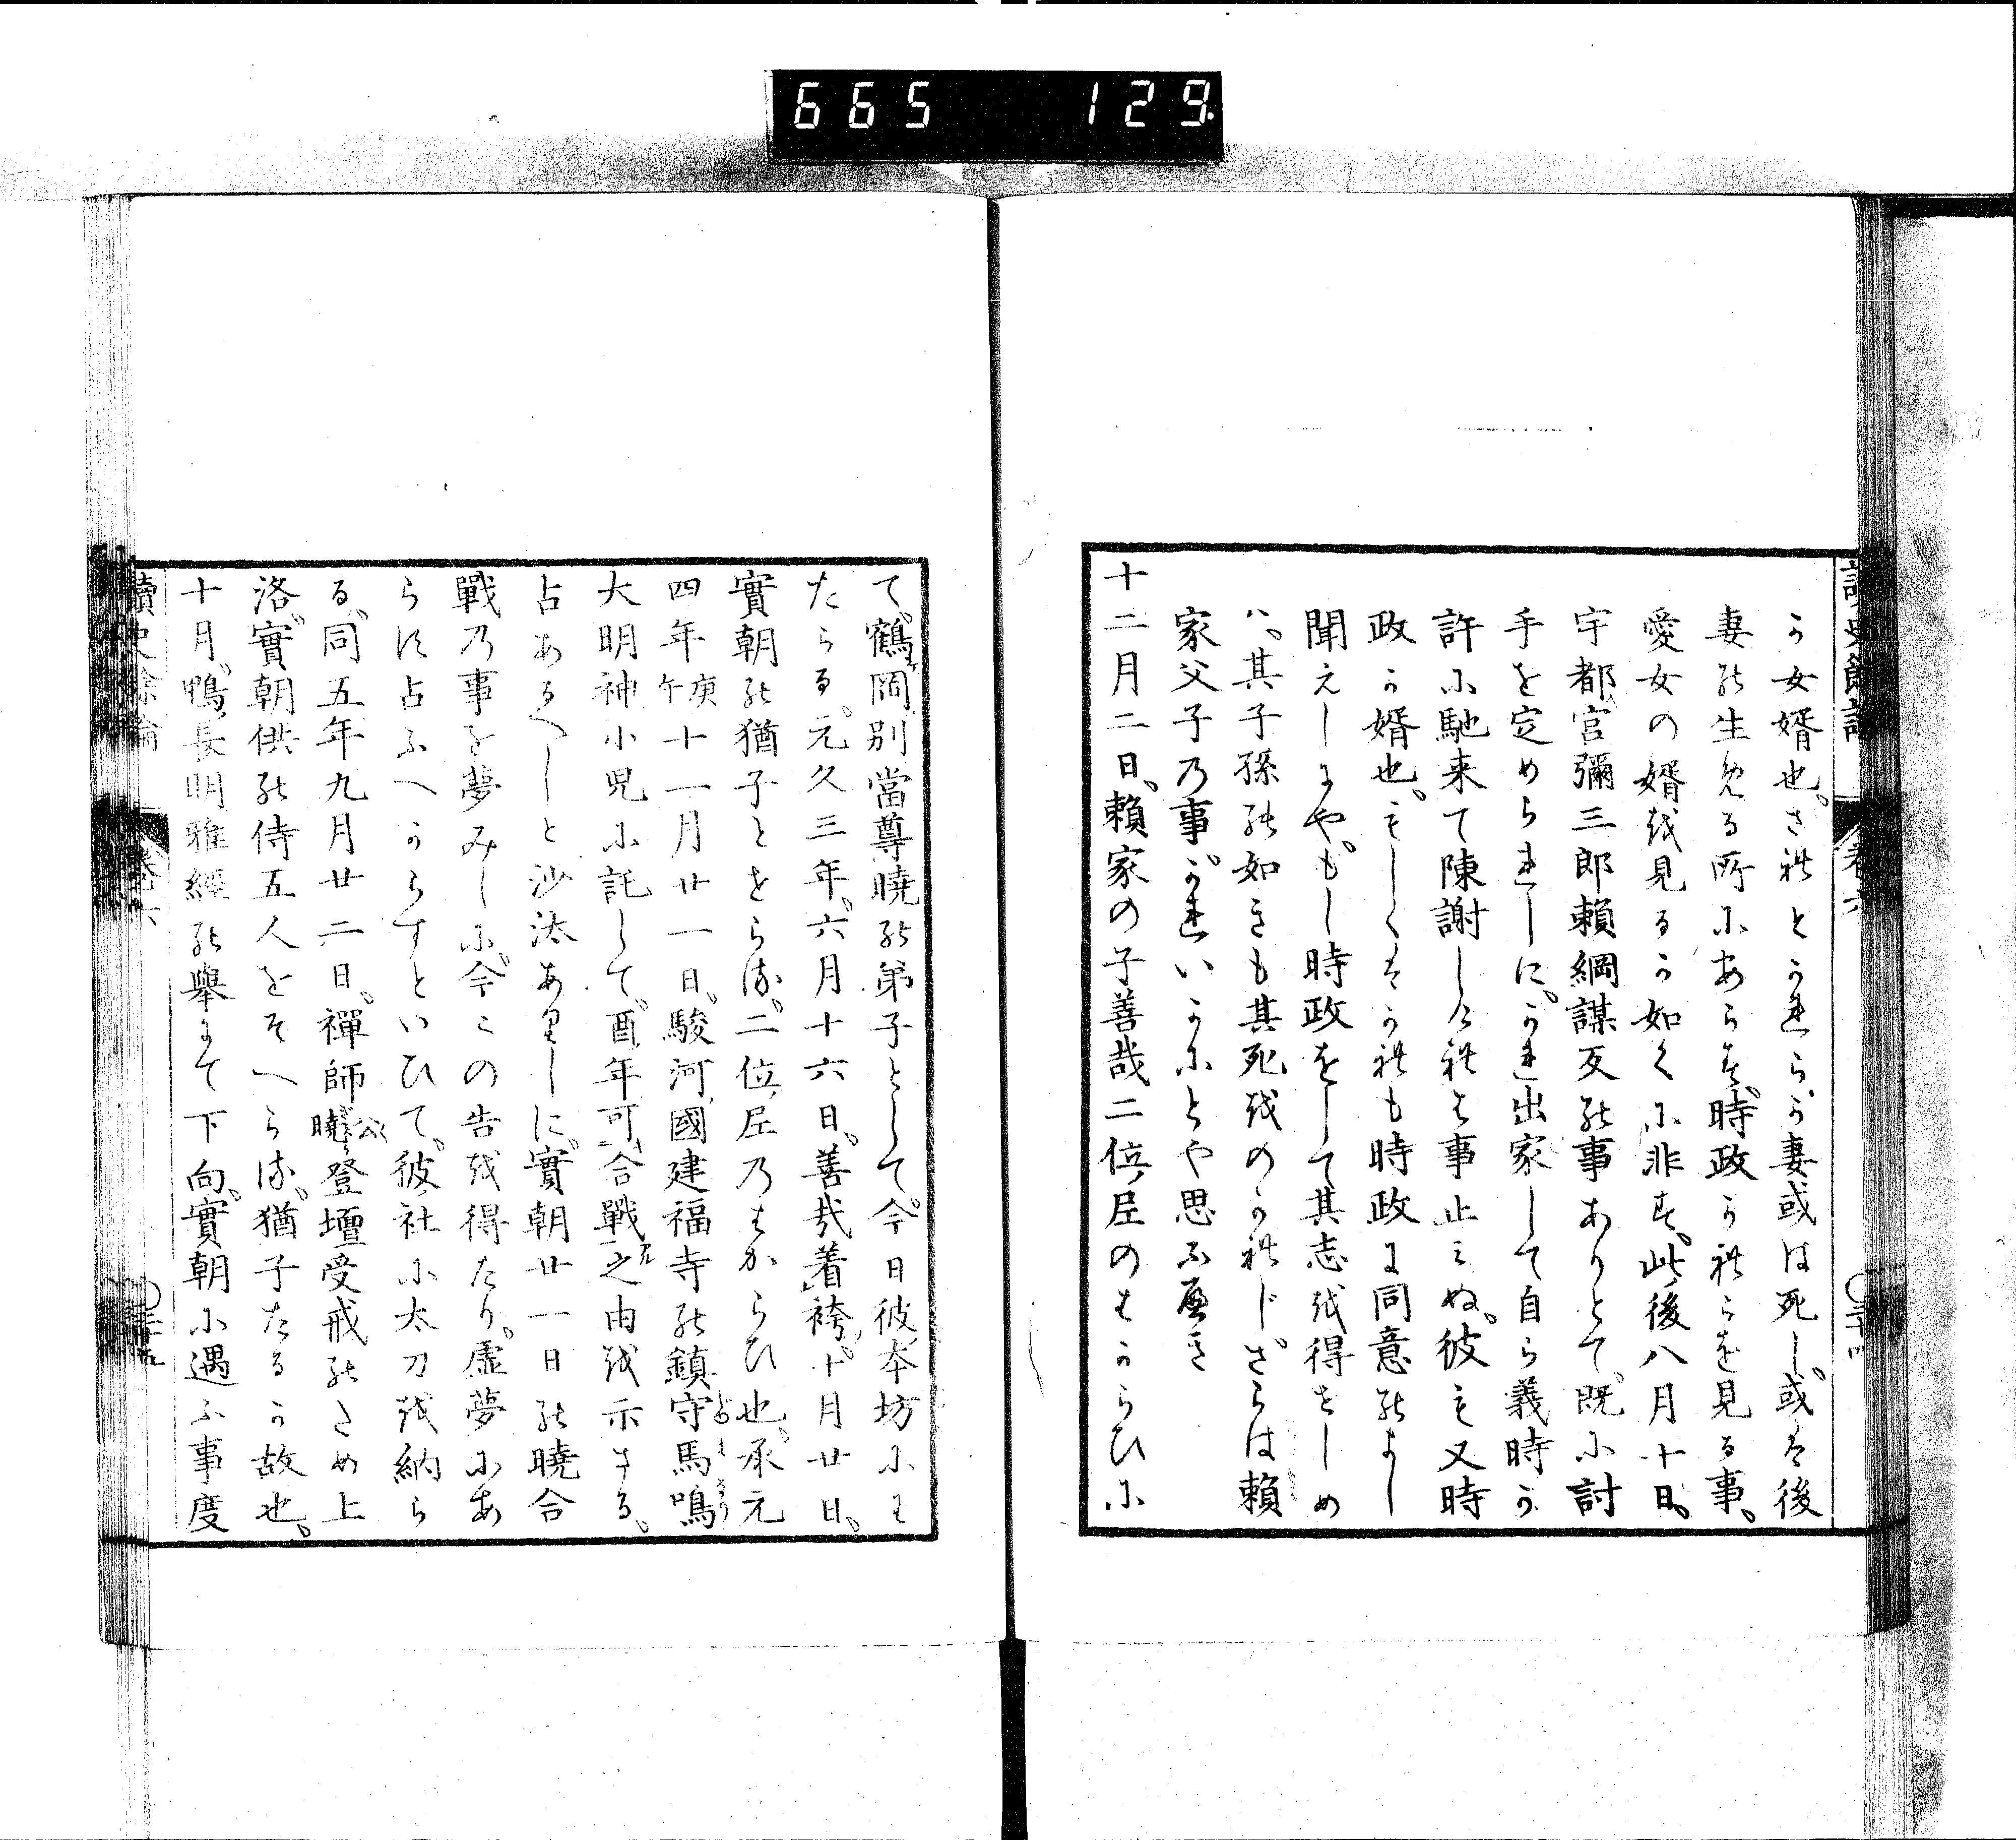 665 129
讀史餘論 卷六
か女婿也、されとかれらが妻或は死し、或は後
妻の生める所にあらす、時政かれらを見る事、
愛女の婿を見るか如くに非す、此後八月十日、
宇都宮彌三郎頼綱謀反の事ありとて、既に討
手を定められしに、かれ出家して自ら義時か
許に馳来て陳謝しけれは事止みぬ、彼も又時
政か婿也、もしくはかれも時政に同意のよし
聞えしにや、もし時政をして其志を得せしめ
ハ、其子孫の如きも其死をのかれじ、さらは頼
家父子の事、かれいかにとや思ふべき
十二月二日、頼家の子善哉二位尼のはからひに
て、鶴岡別當尊曉の弟子として、今日彼本坊にわ
たらる、元久三年、六月十六日、善哉着袴、十月廿日、
實朝の猶子とせらる、二位尼のはからひ也、承元
四年庚午十一月廿一日、駿河國建福寺の鎮守馬鳴
大明神小兒に託して、酉年可合戰之由を示さる、
占あるへしと沙汰ありしに、實朝廿一日の曉合
戰の事を夢みしに、今この告を得たり、虚夢にあ
らす占ふへからすといひて、彼社に太刀を納ら
る、同五年九月廿二日、禪師公曉登壇受戒のため上
洛、實朝供の侍五人をそへらる、猶子たるか故也、
十月、鴨長明雅經の擧にて下向、實朝に遇ふ事度
讀史餘論 卷六